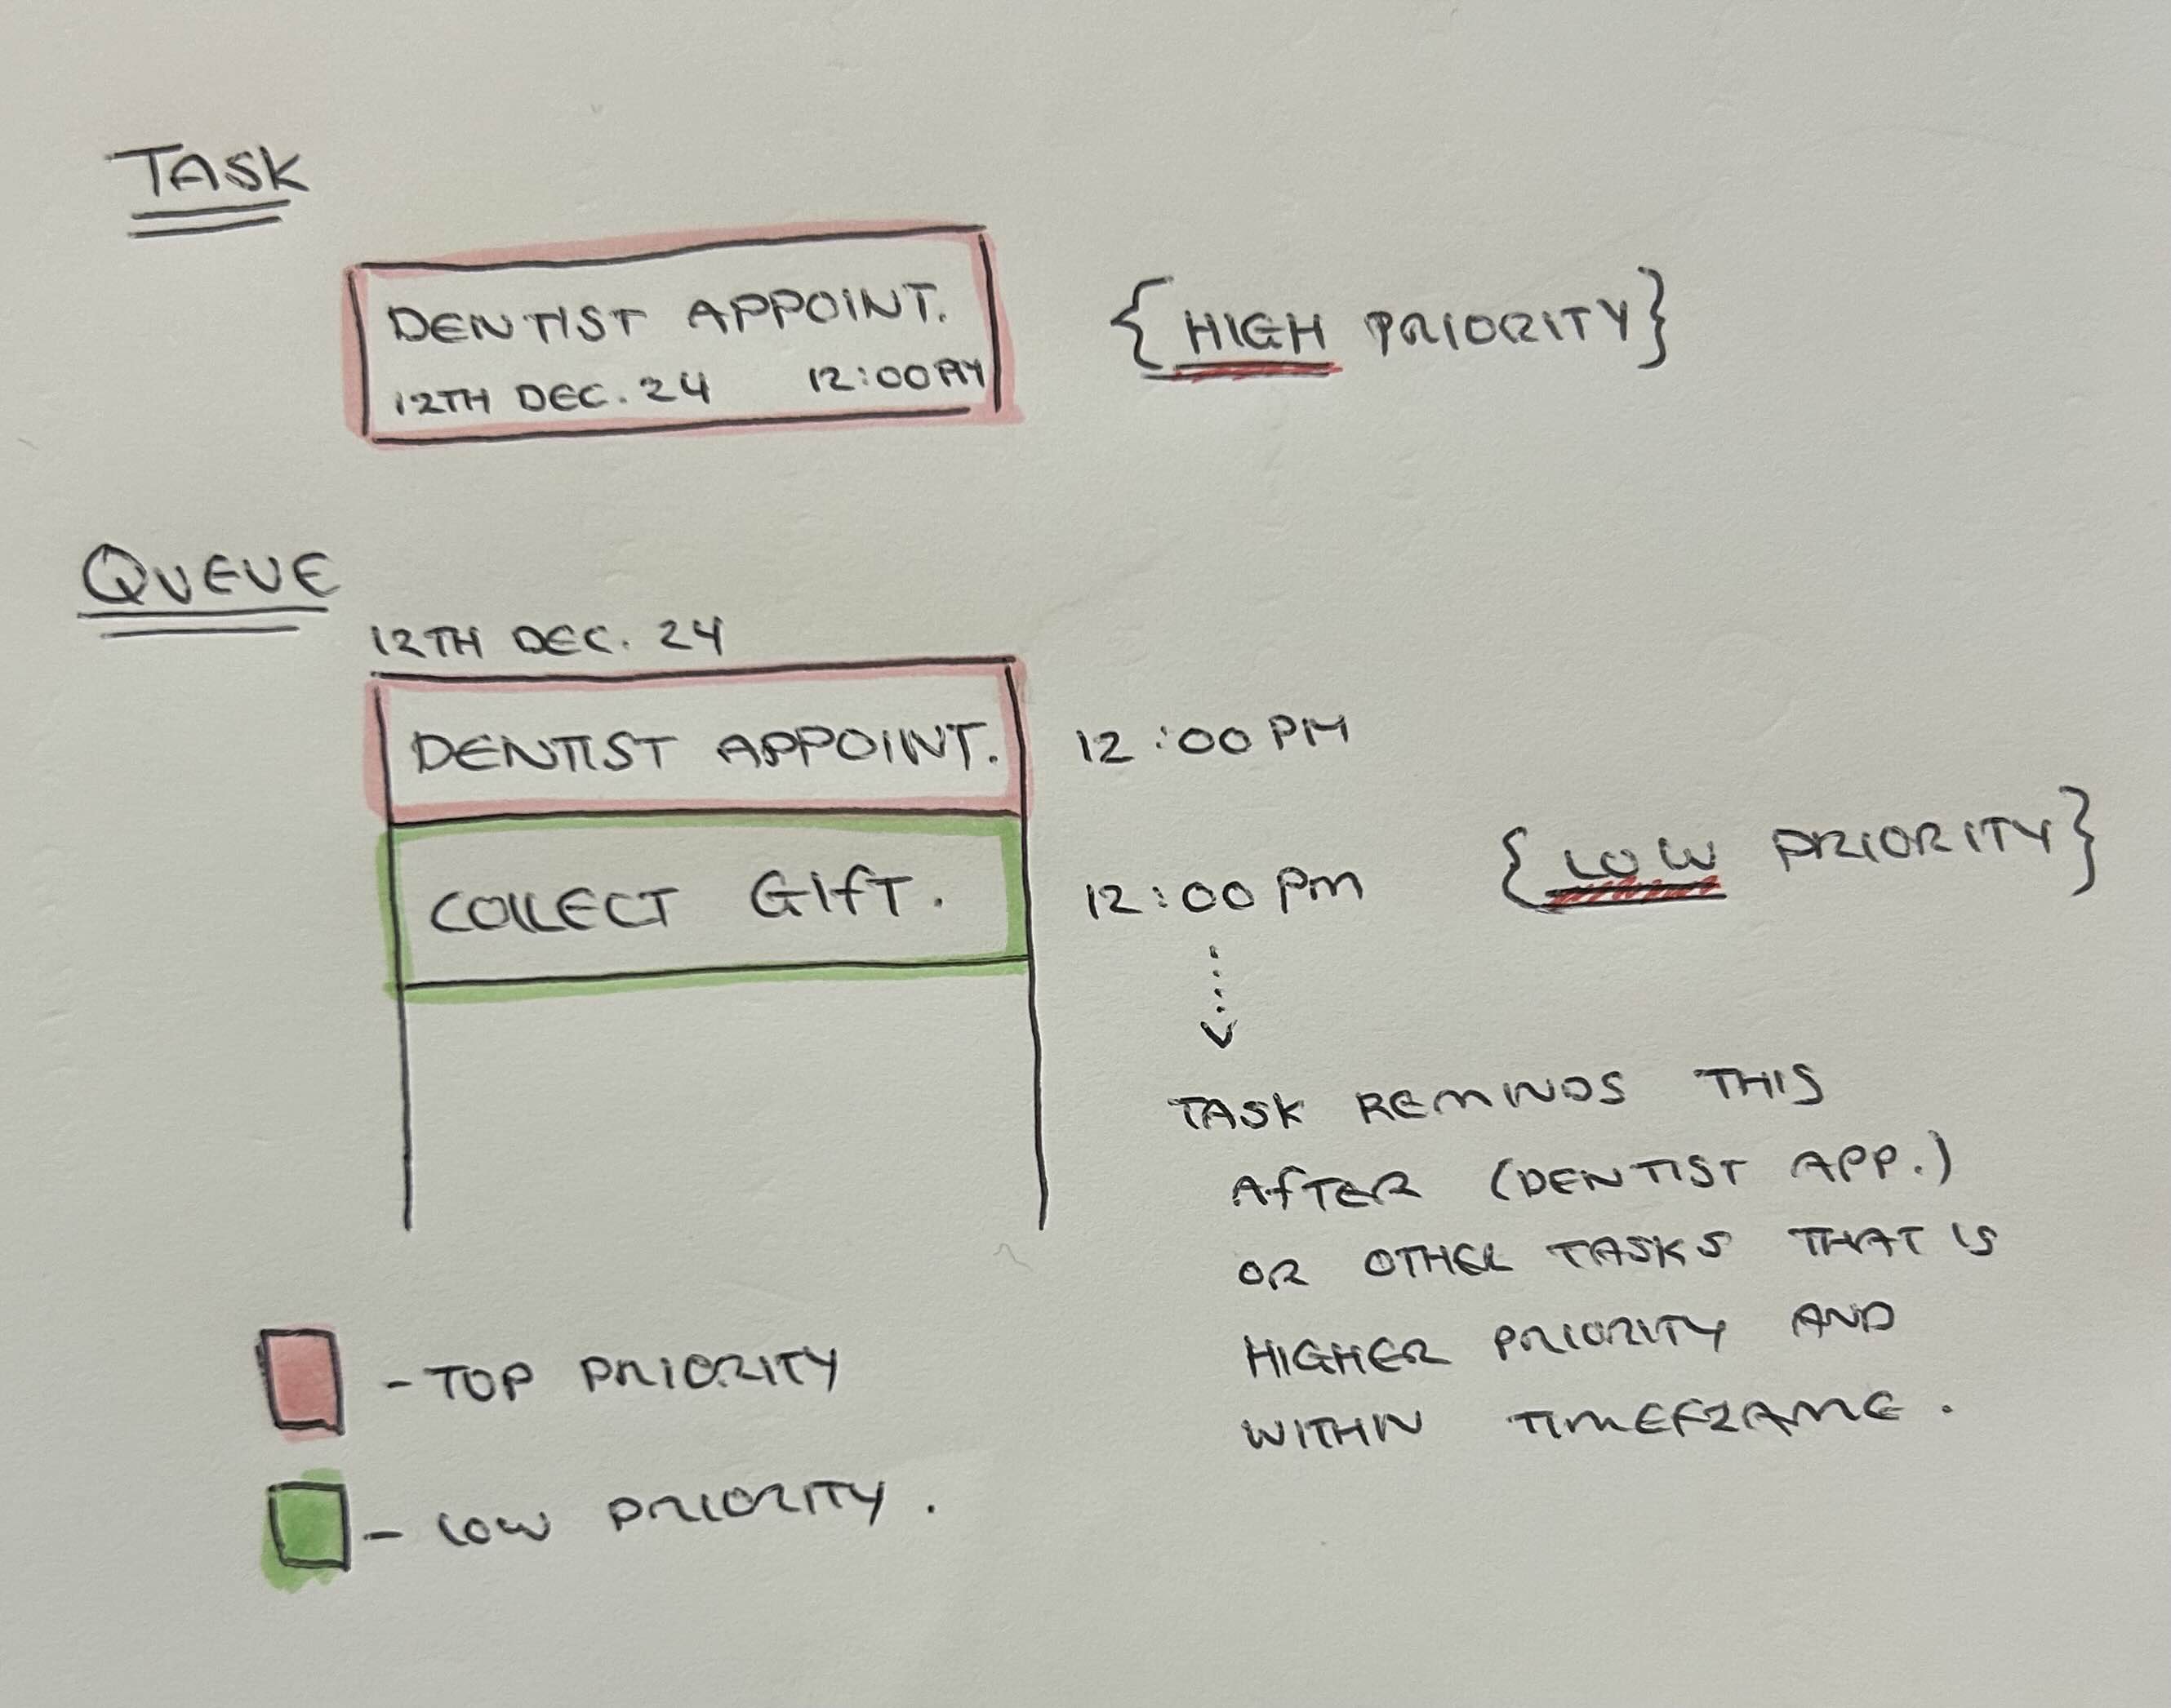 TASK
DENTIST APPOINT.
12TH DEC. 24 12:00PM
{HIGH PRIORITY}
QUEUE
12TH DEC. 24
DENTIST APPOINT. 12:00 PM
COLLECT GIFT. 12:00 PM
{LOW PRIORITY}
TASK REMINDS THIS
AFTER (DENTIST APP.)
OR OTHER TASKS THAT IS
HIGHER PRIORITY AND
WITHIN TIMEFRAME.
- TOP PRIORITY
- LOW PRIORITY.